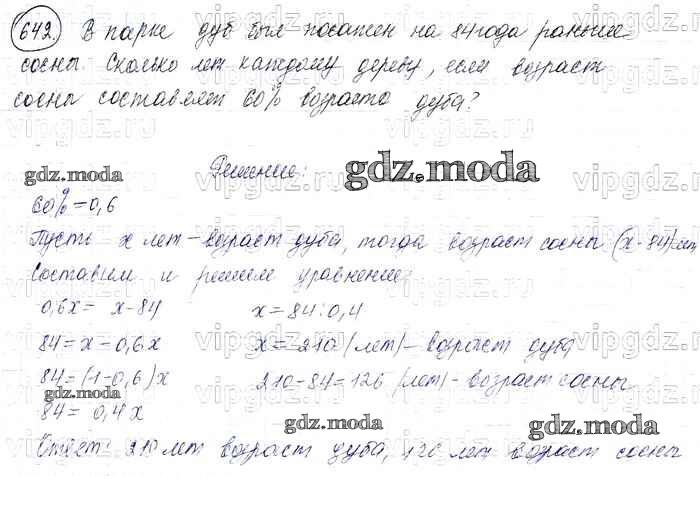 642. В парке дуб был посажен на 84 года раньше
сосны. Сколько лет каждому дереву, если возраст
сосны составляет 60% возраста дуба?
Решение:
60%=0,6
Пусть х лет - возраст дуба, тогда возраст сосны (х-84) лет
Составим и решим уравнение:
0,6х = х-84
84 = х-0,6х
84 = (1-0,6)х
84 = 0,4х
х = 84:0,4
х = 210 (лет) - возраст дуба
210-84=126 (лет) - возраст сосны
Ответ: 210 лет возраст дуба, 126 лет возраст сосны
gdz.moda
gdz.moda
gdz.moda
gdz.moda
gdz.moda
vipgdz.ru